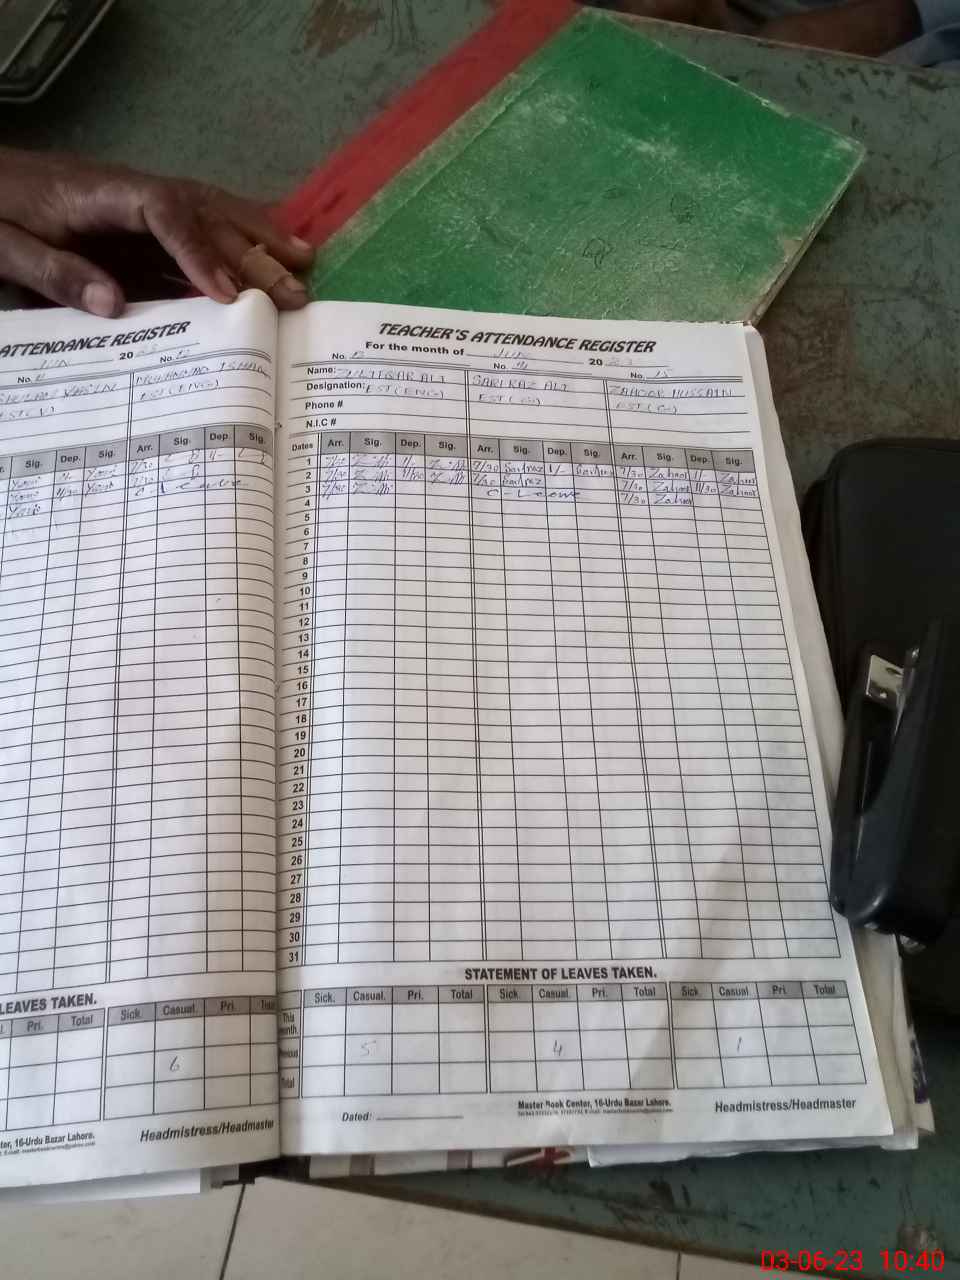 ATTENDANCE REGISTER
20
No.
No. 12
EST(ENG)
Sig. Dep. Sig. Arr. Sig. Dep. Sig.
7/30
11/30
LEAVES TAKEN.
Pri. Total Sick. Casual. Pri. Total
6
16-Urdu Bazar Lahore.
Headmistress/Headmaster
TEACHER'S ATTENDANCE REGISTER
For the month of JUN 20 23
No. 13 No. 14 No. 15
Name: ZULFIQAR ALI SARFRAZ ALI ZAHOOR HUSSAIN
Designation: EST(ENG) EST(G) EST(G)
Phone #
N.I.C #
Dates Arr. Sig. Dep. Sig. Arr. Sig. Dep. Sig. Arr. Sig. Dep. Sig.
1 7/30 11/- 7/30 Sarfraz 11/- Sarfraz 7/30 Zahoor 11/- Zahoor
2 7/30 11/30 7/30 Sarfraz 7/30 Zahoor 11/30 Zahoor
3 7/30 C-Leave 7/30 Zahoor
4
5
6
7
8
9
10
11
12
13
14
15
16
17
18
19
20
21
22
23
24
25
26
27
28
29
30
31
STATEMENT OF LEAVES TAKEN.
Sick. Casual. Pri. Total Sick. Casual. Pri. Total Sick. Casual. Pri. Total
This month.
Previous 5 4 1
Total
Dated:
Master Book Center, 16-Urdu Bazar Lahore.
Headmistress/Headmaster
03-06-23 10:40